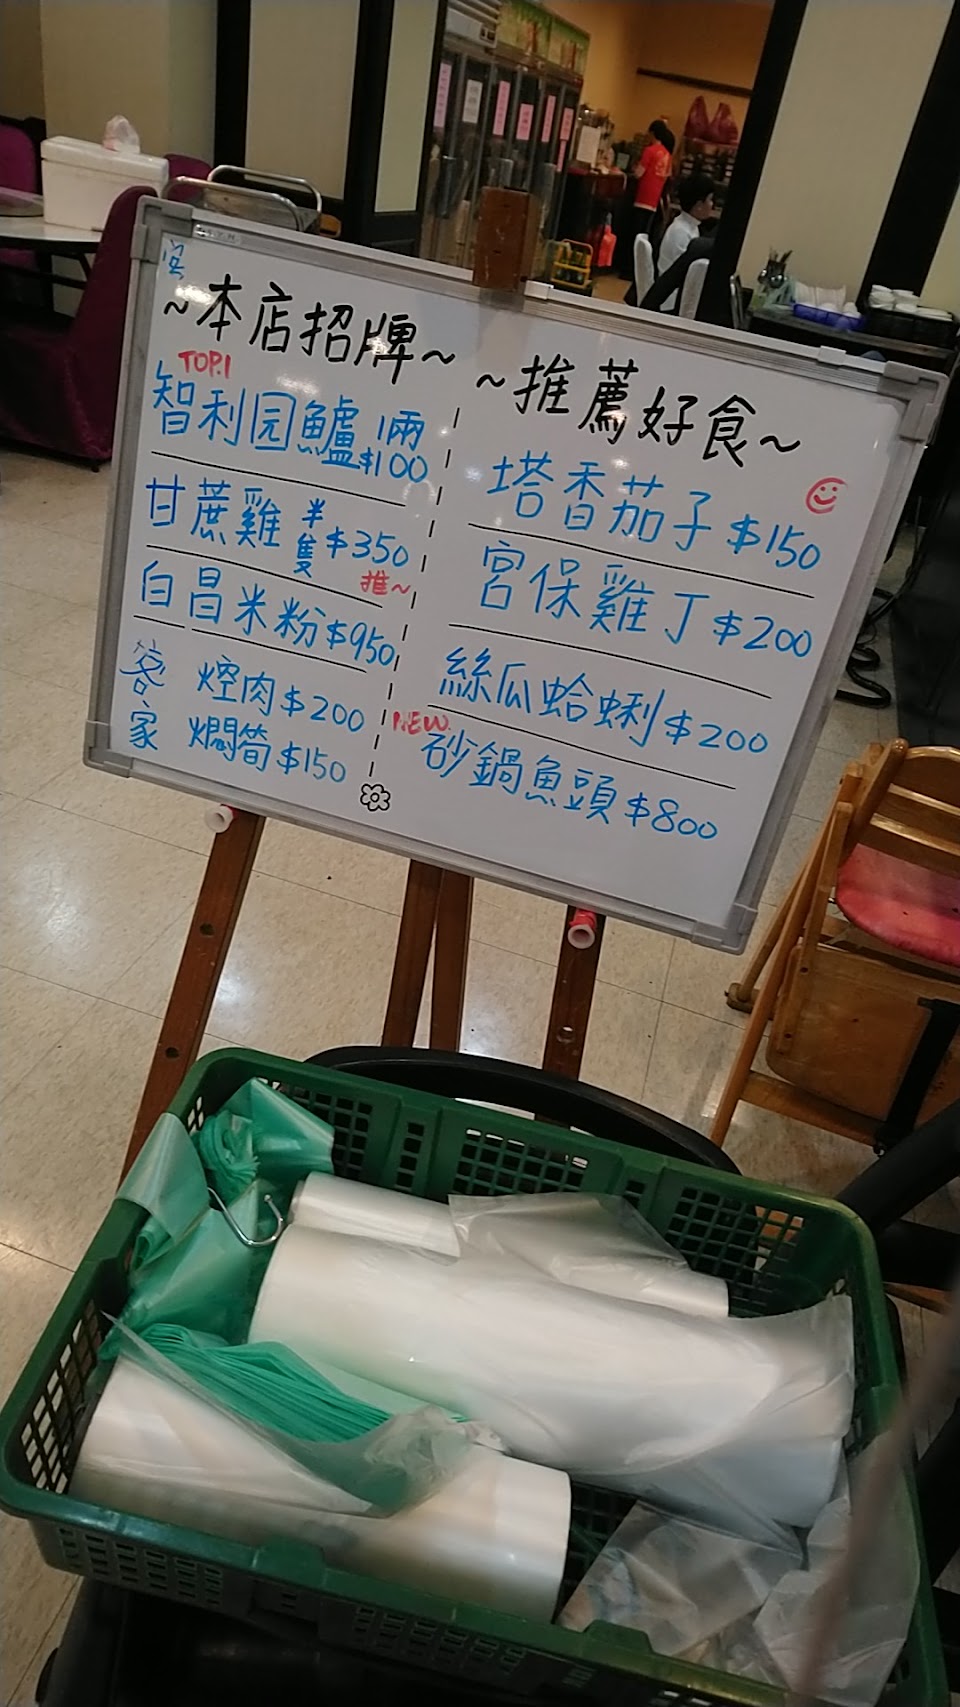 ~本店招牌~
TOP.1
智利园鱸 1兩 $100
甘蔗雞 半隻 $350
推~
白昌米粉 $950
客家 焢肉 $200
燜筍 $150
~推薦好食~
塔香茄子 $150
宮保雞丁 $200
絲瓜蛤蜊 $200
NEW.
砂鍋魚頭 $800